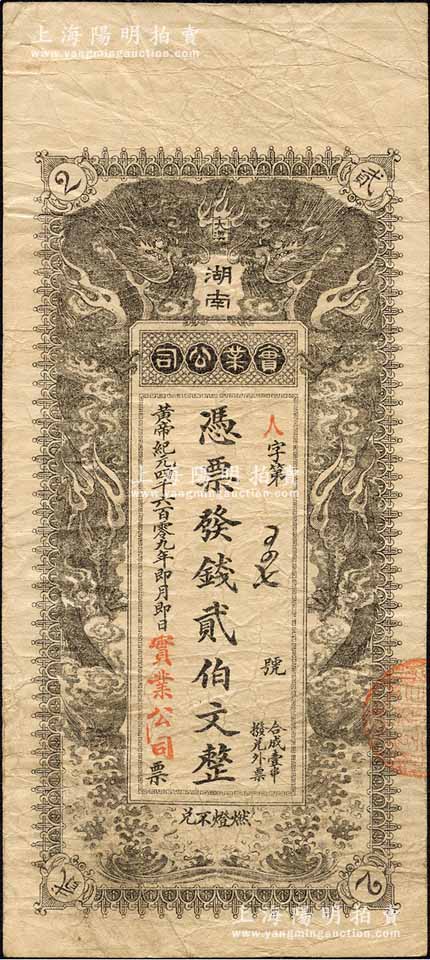 上海陽明拍賣
www.yangmingauction.com
2
貳
大漢
湖南
實業公司
人字第
號
合成壹串
撥兑外票
憑票發錢貳伯文整
黃帝紀元四千六百零九年即月即日實業公司票
燃燈不兑
貳
2
上海陽明拍賣
www.yangmingauction.com
上海陽明拍賣
www.yangmingauction.com